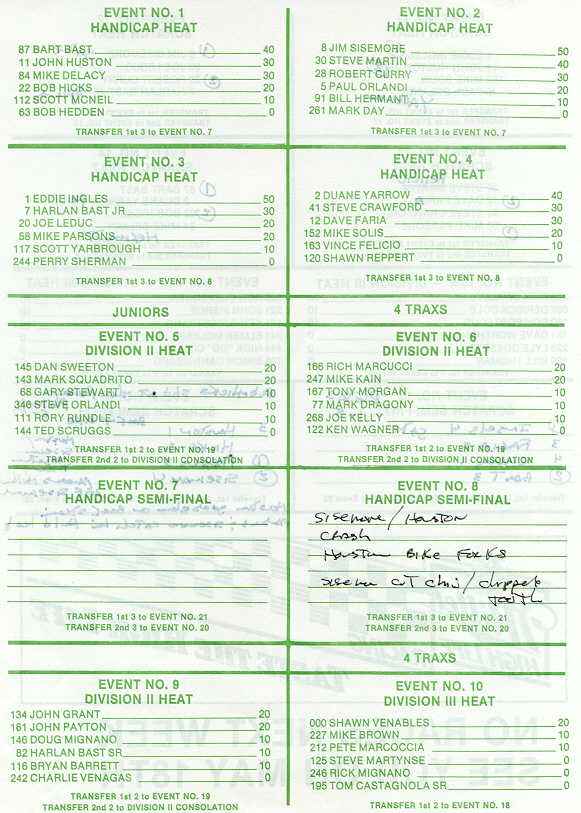 EVENT NO. 1
HANDICAP HEAT
87 BART BAST 40
11 JOHN HUSTON 30
84 MIKE DELACY 30
22 BOB HICKS 20
112 SCOTT MCNEIL 10
63 BOB HEDDEN 0
TRANSFER 1st 3 to EVENT NO. 7
EVENT NO. 2
HANDICAP HEAT
8 JIM SISEMORE 50
30 STEVE MARTIN 40
28 ROBERT CURRY 30
5 PAUL ORLANDI 20
91 BILL HERMANT 10
261 MARK DAY 0
TRANSFER 1st 3 to EVENT NO. 7
EVENT NO. 3
HANDICAP HEAT
1 EDDIE INGLES 50
7 HARLAN BAST JR 30
20 JOE LEDUC 20
58 MIKE PARSONS 20
117 SCOTT YARBROUGH 10
244 PERRY SHERMAN 0
TRANSFER 1st 3 to EVENT NO. 8
EVENT NO. 4
HANDICAP HEAT
2 DUANE YARROW 40
41 STEVE CRAWFORD 30
12 DAVE FARIA 30
152 MIKE SOLIS 20
163 VINCE FELICIO 10
120 SHAWN REPPERT 0
TRANSFER 1st 3 to EVENT NO. 8
JUNIORS
4 TRAXS
EVENT NO. 5
DIVISION II HEAT
145 DAN SWEETON 20
143 MARK SQUADRITO 20
68 GARY STEWART 10
346 STEVE ORLANDI 10
111 RORY RUNDLE 10
144 TED SCRUGGS 0
TRANSFER 1st 2 to EVENT NO. 19
TRANSFER 2nd 2 to DIVISION II CONSOLATION
EVENT NO. 6
DIVISION II HEAT
166 RICH MARCUCCI 20
247 MIKE KAIN 20
167 TONY MORGAN 10
77 MARK DRAGONY 10
268 JOE KELLY 10
122 KEN WAGNER 0
TRANSFER 1st 2 to EVENT NO. 19
TRANSFER 2nd 2 to DIVISION II CONSOLATION
EVENT NO. 7
HANDICAP SEMI-FINAL
TRANSFER 1st 3 to EVENT NO. 21
TRANSFER 2nd 3 to EVENT NO. 20
EVENT NO. 8
HANDICAP SEMI-FINAL
Sisemore / Houston
Crash
Houston Bike Forks
Sisemore cut chin / chipped
tooth
TRANSFER 1st 3 to EVENT NO. 21
TRANSFER 2nd 3 to EVENT NO. 20
4 TRAXS
EVENT NO. 9
DIVISION II HEAT
134 JOHN GRANT 20
161 JOHN PAYTON 20
146 DOUG MIGNANO 10
82 HARLAN BAST SR 10
116 BRYAN BARRETT 10
242 CHARLIE VENAGAS 0
TRANSFER 1st 2 to EVENT NO. 19
TRANSFER 2nd 2 to DIVISION II CONSOLATION
EVENT NO. 10
DIVISION III HEAT
000 SHAWN VENABLES 20
227 MIKE BROWN 10
212 PETE MARCOCCIA 10
125 STEVE MARTYNSE 0
246 RICK MIGNANO 0
195 TOM CASTAGNOLA SR 0
TRANSFER 1st 2 to EVENT NO. 18